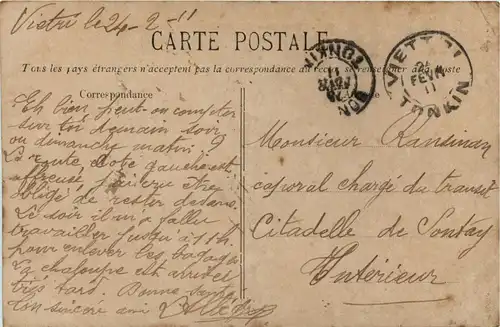 Vietri le 24-2-11
CARTE POSTALE
Tous les pays étrangers n'acceptent pas la correspondance au recto se renseigner à la Poste
Correspondance
Eh bien peut-on compter
sur toi demain soir
ou dimanche matin ?
La route côté gauche est
affreuse j'ai cru être
obligé de rester dedans.
Le soir il m'a fallu
travailler jusqu'à 11h
pour enlever les bagages
La chaloupe est arrivée
très tard. Bonne santé
Ton sincère ami
VIETRI
FEVR
11
TONKIN
TONKIN
Monsieur Ransinan
caporal chargé du transit
Citadelle de Sontay
Intérieur